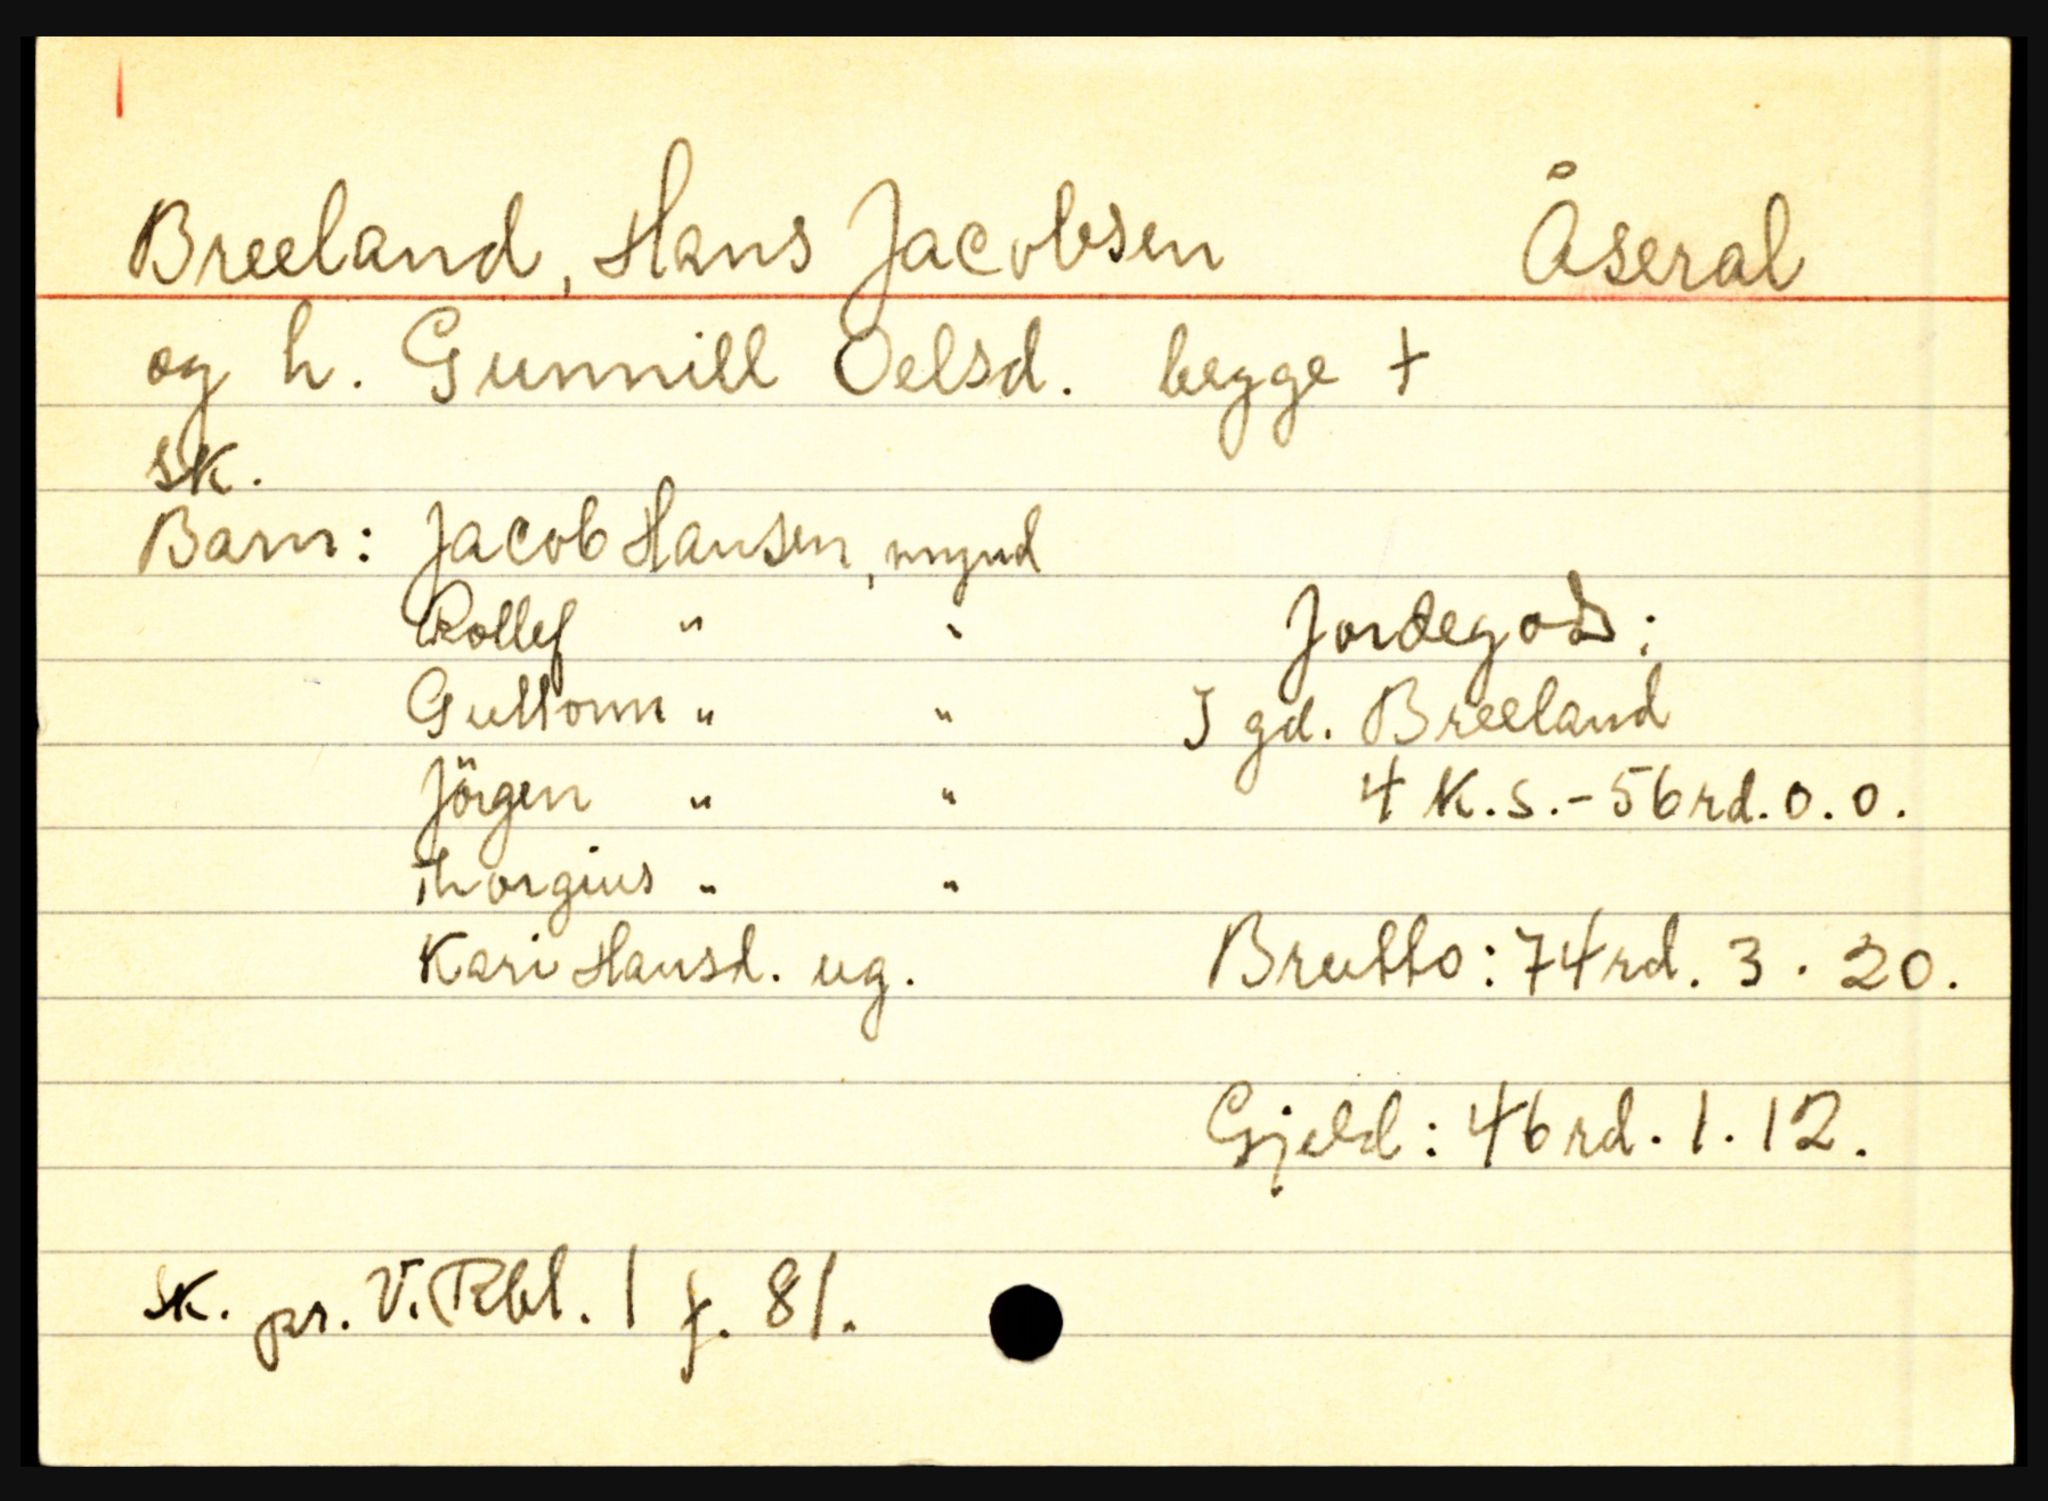 Breeland, Hans Jacobsen Åseral
og h. Gunnill Oelsd. begge +
sk.
Barn: Jacob Hansen, mynd
Rollef " "
Guttorm " "
Jörgen " "
Thorgius " "
Kari Hansd. ug.
Jordegods:
I gd. Breeland
4 k.s.-56rd.0.0.
Brutto: 74rd. 3. 20.
Gjeld: 46rd. 1. 12.
sk. pr. V. Rbl. 1 f. 81.